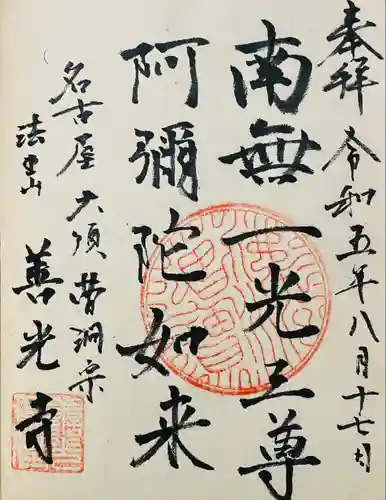 奉拝 令和五年八月十七日
南無一光三尊
阿彌陀如来
名古屋大須曹洞宗
法王山
善光寺